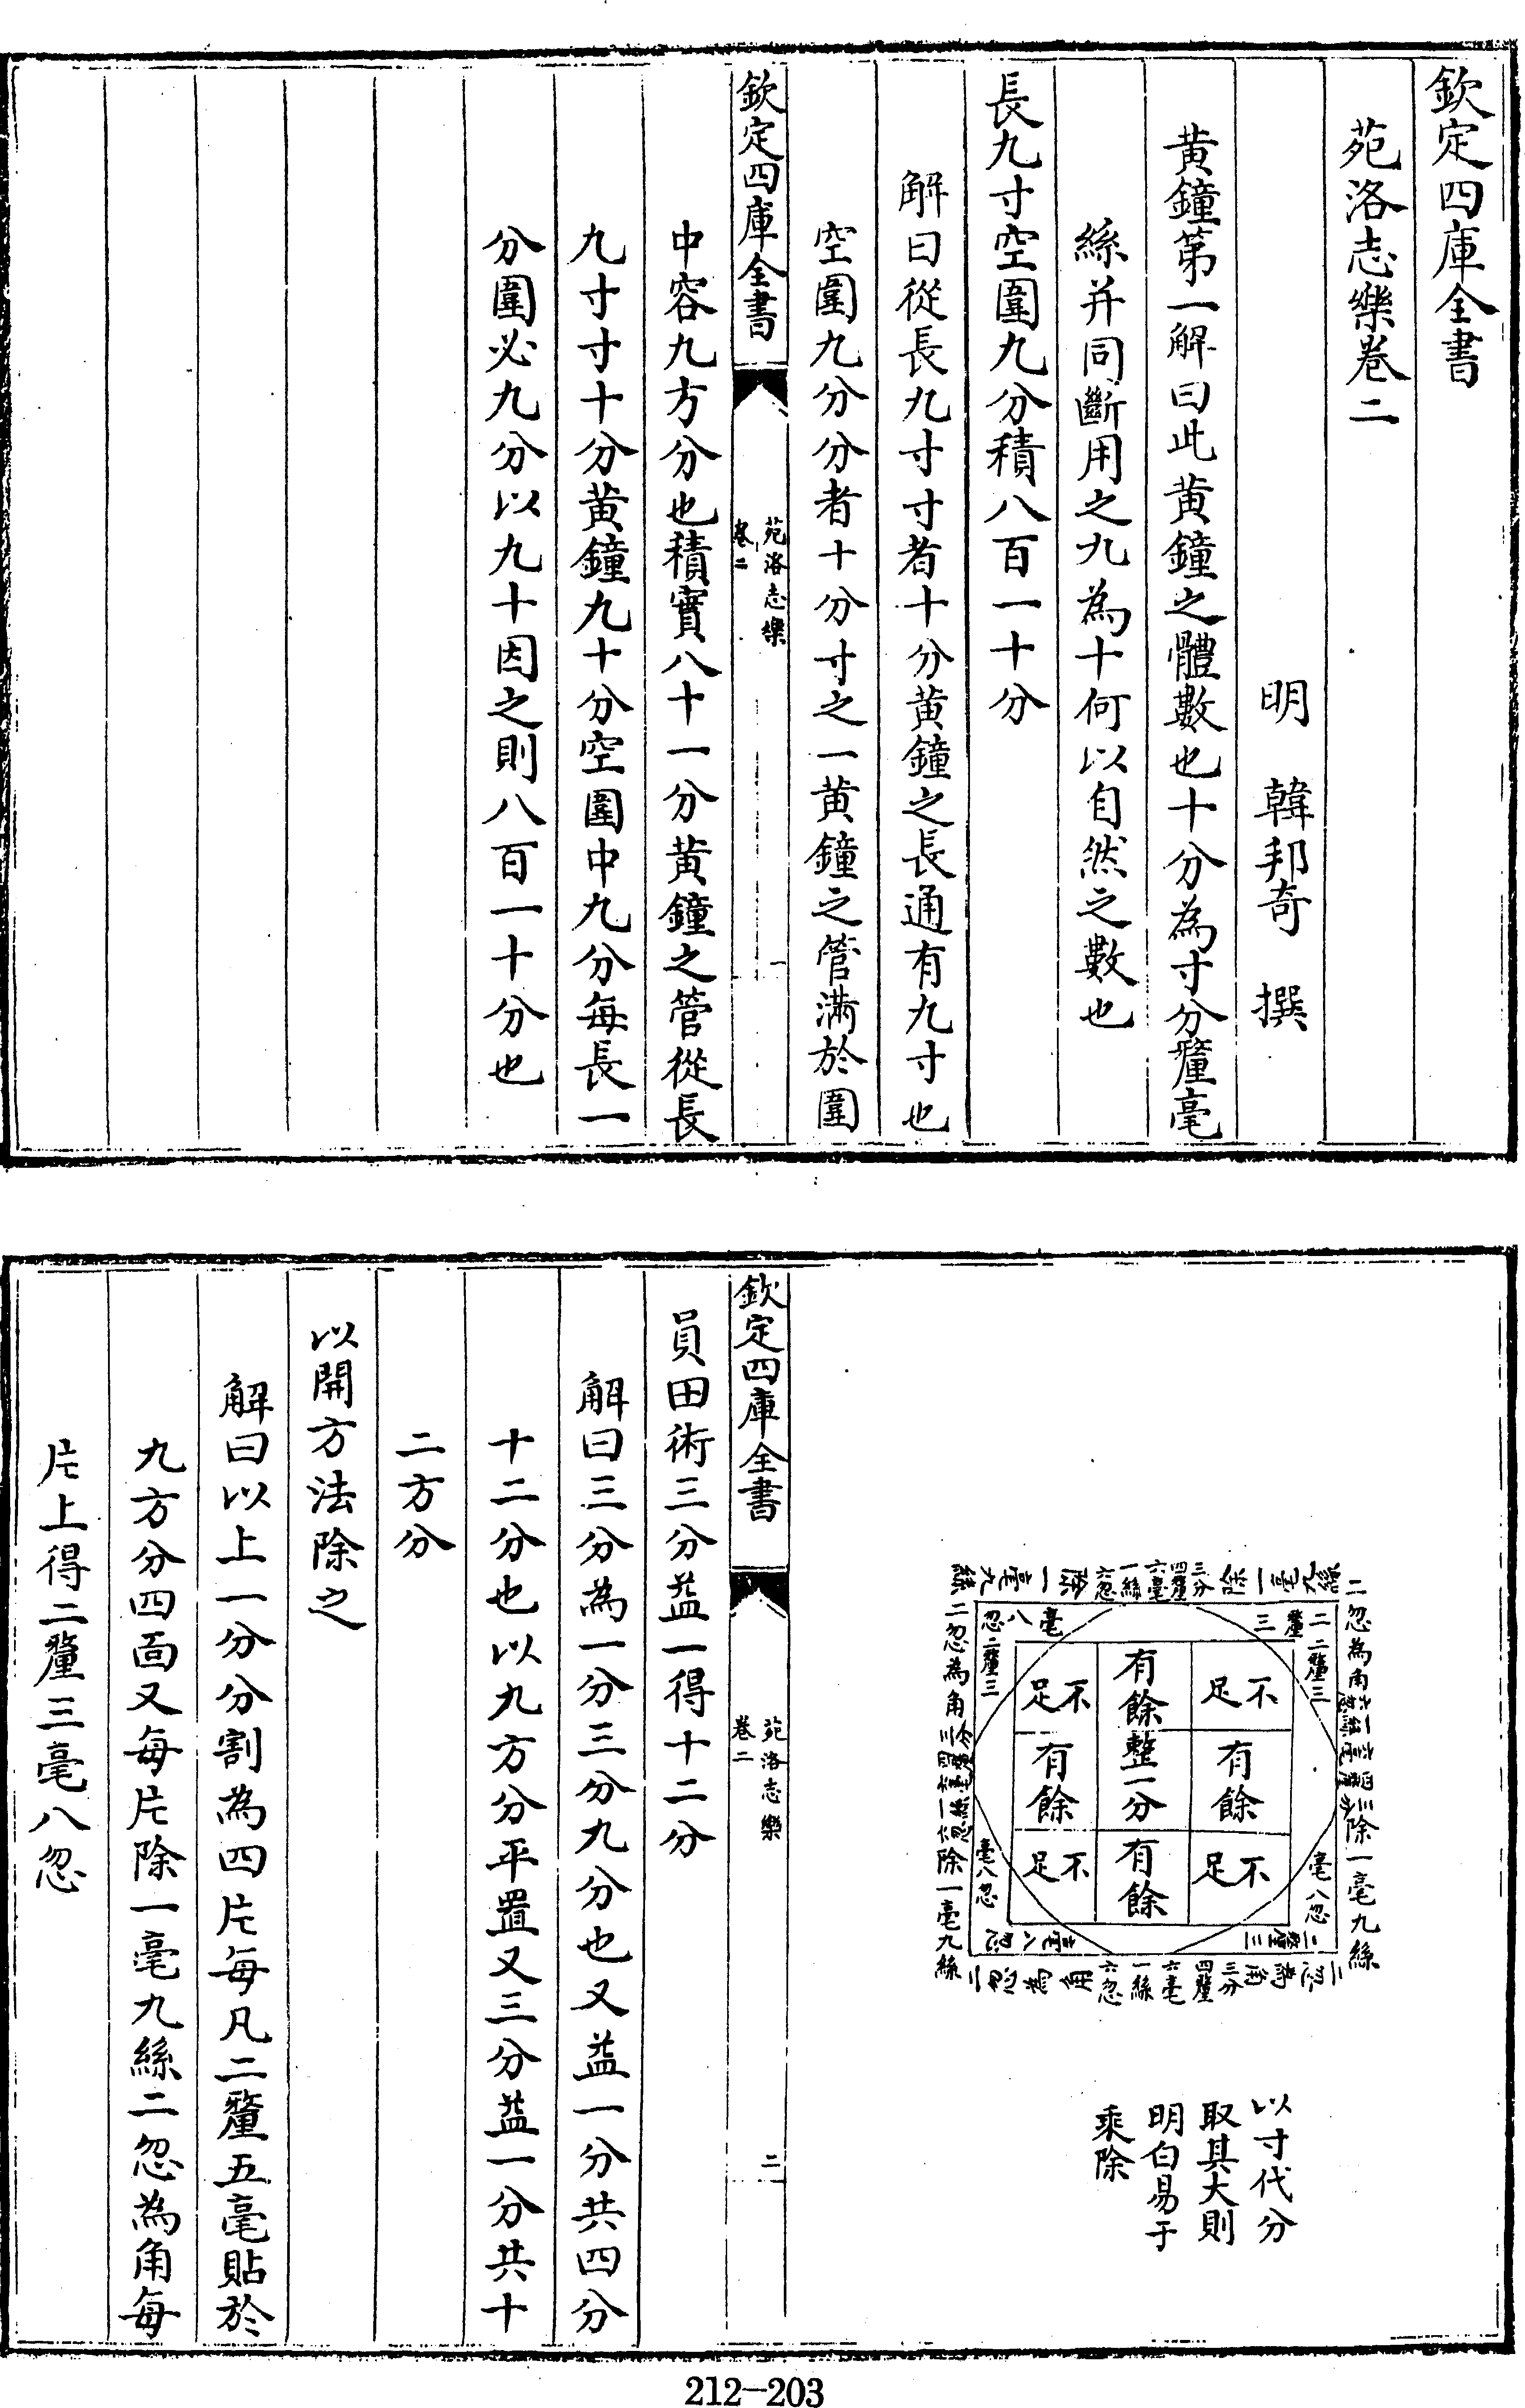 欽定四庫全書
苑洛志樂卷二
明　韓邦奇　撰
黄鐘第一解曰此黄鐘之體數也十分為寸分釐毫
絲并同斷用之九為十何以自然之數也
長九寸空圍九分積八百一十分
解曰從長九寸寸者十分黄鐘之長通有九寸也
空圍九分分者十分寸之一黄鐘之管滿於圍
欽定四庫全書
苑洛志樂
卷二
一
中容九方分也積實八十一分黄鐘之管從長
九寸寸十分黄鐘九十分空圍中九分每長一
分圍必九分以九十因之則八百一十分也
二忽為角
除一毫九絲
絲九毫一除
三分四釐六毫一絲六忽
除一毫九絲
二忽為角
除一毫九絲
二釐三
毫八忽
二釐三
毫八忽
二釐三
毫八忽
二釐三
毫八忽
不足
有餘
不足
有餘
整一分
有餘
不足
有餘
不足
三分四釐六毫一絲六忽
以寸代分
取其大則
明白易于
乘除
欽定四庫全書
苑洛志樂
卷二
二
員田術三分益一得十二分
解曰三分為一分三分九分也又益一分共四分
十二分也以九方分平置又三分益一分共十
二方分
以開方法除之
解曰以上一分分割為四片每凡二釐五毫貼於
九方分四面又每片除一毫九絲二忽為角每
片上得二釐三毫八忽
212-203